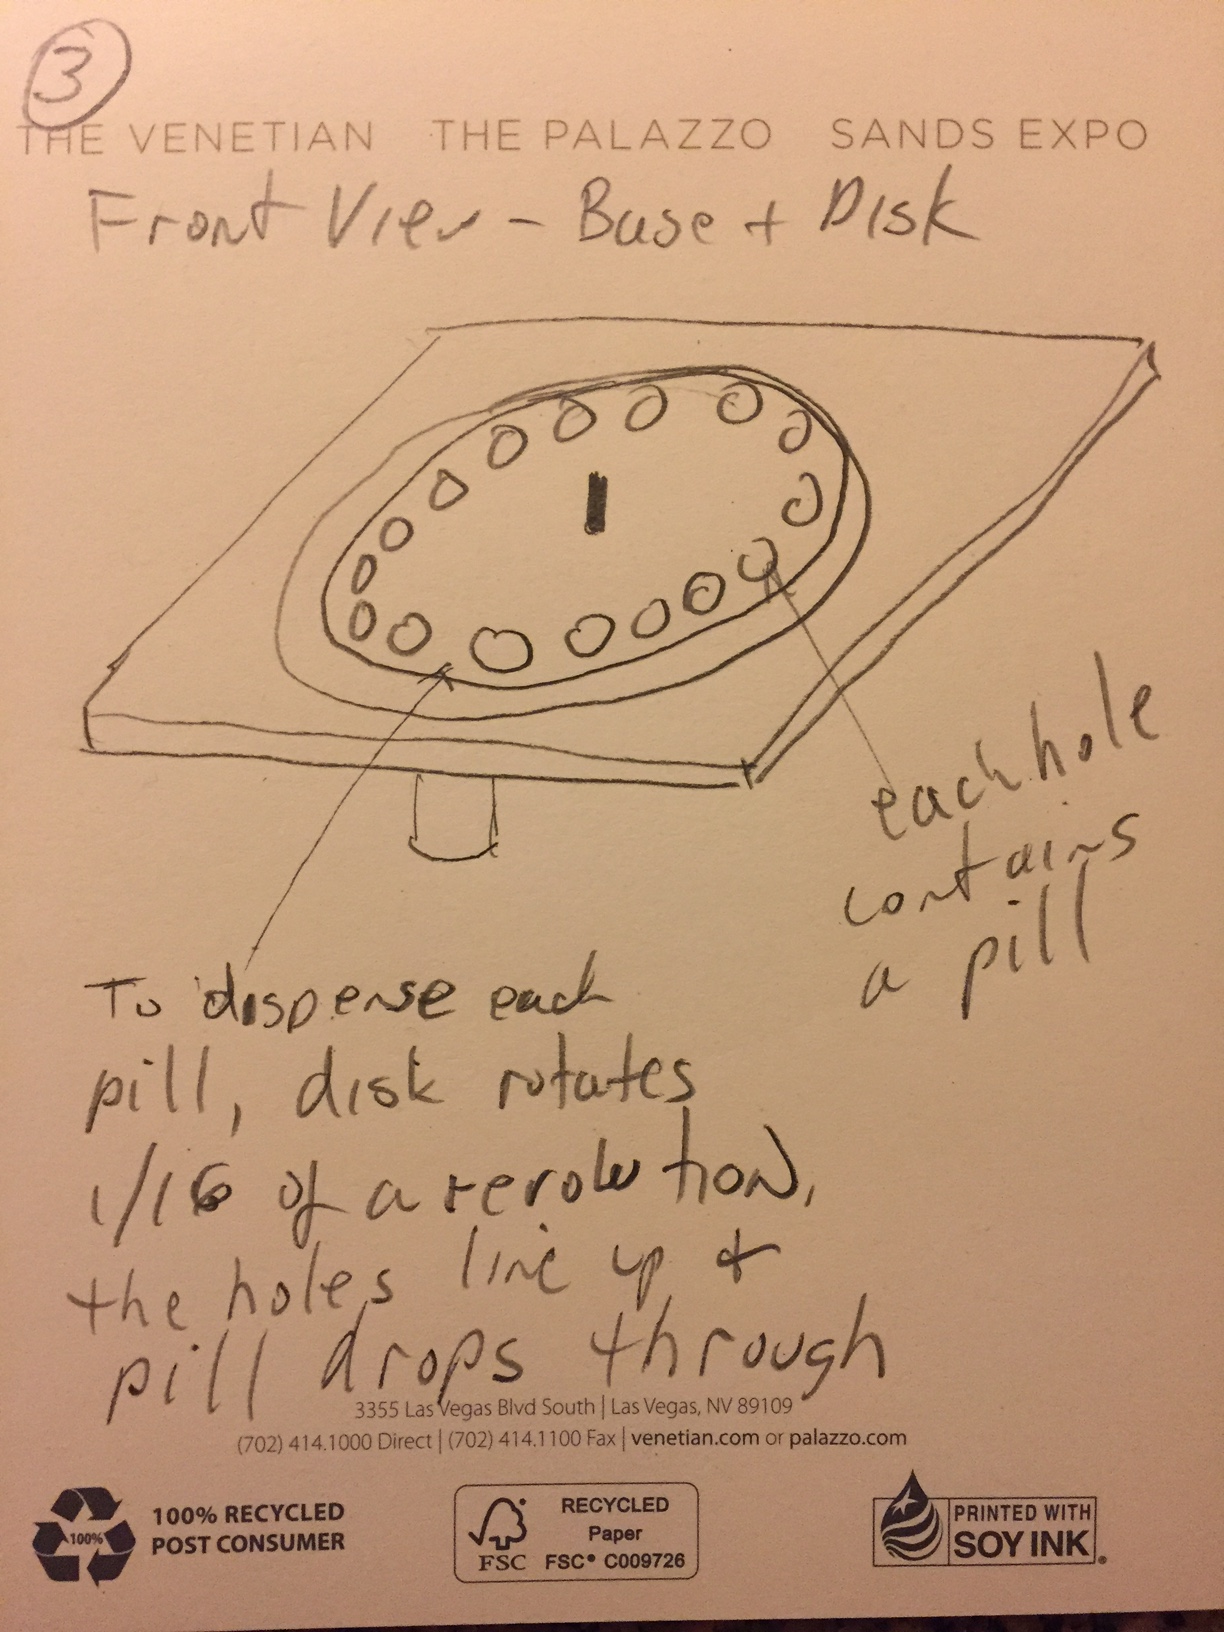 3
THE VENETIAN THE PALAZZO SANDS EXPO
Front View - Base + Disk
each hole
contains
a pill
To dispense each
pill, disk rotates
1/16 of a revolution,
the holes line up +
pill drops through
3355 Las Vegas Blvd South | Las Vegas, NV 89109
(702) 414.1000 Direct | (702) 414.1100 Fax | venetian.com or palazzo.com
100%
100% RECYCLED
POST CONSUMER
FSC
RECYCLED
Paper
FSC® C009726
PRINTED WITH
SOY INK